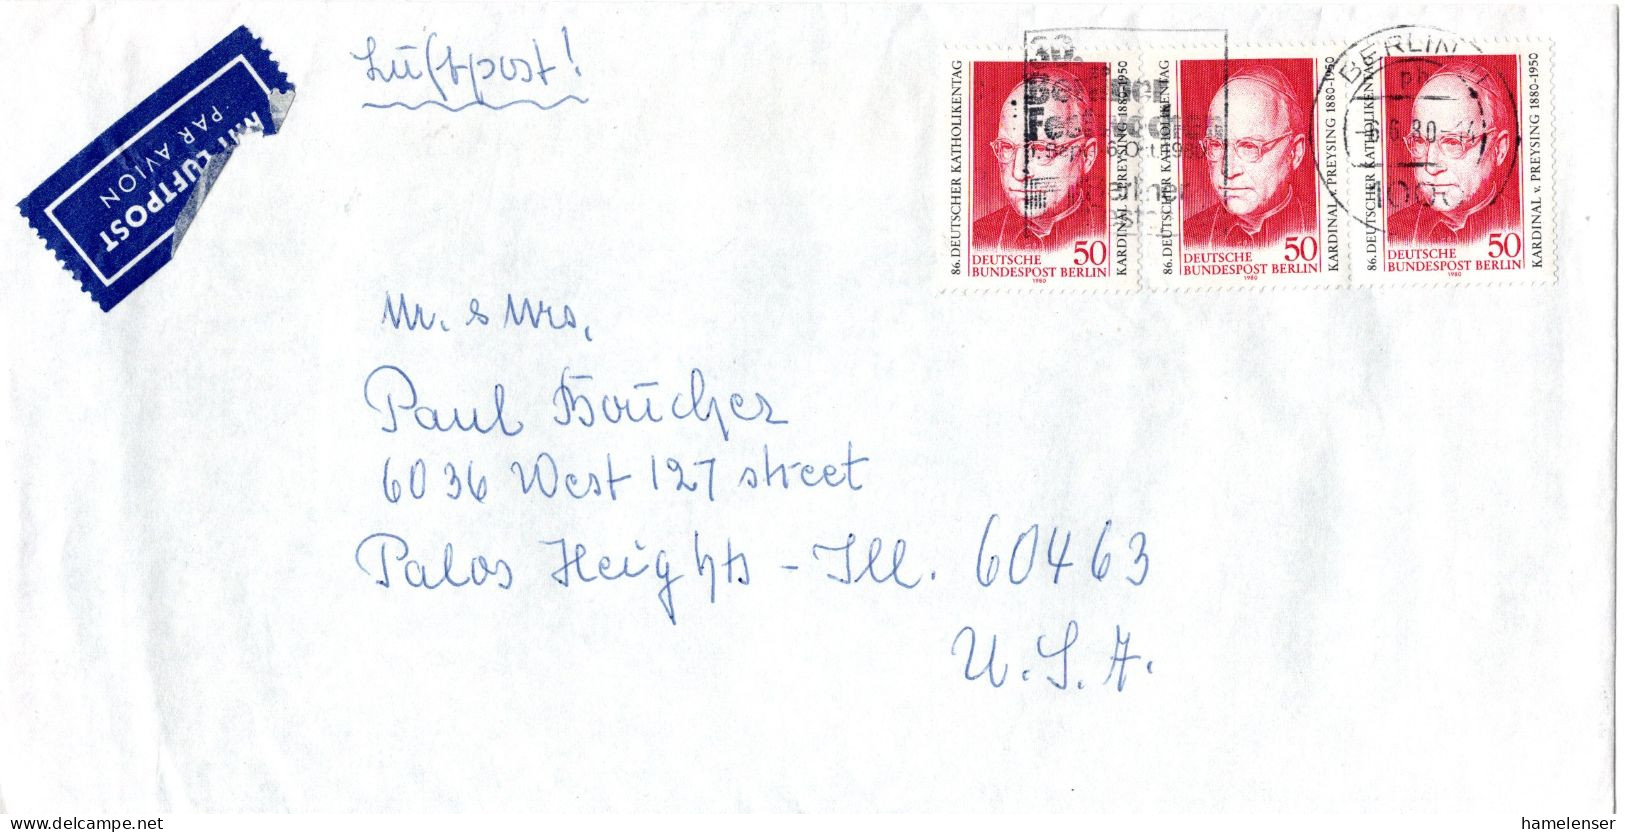 Luftpost!
MIT LUFTPOST
PAR AVION
86. DEUTSCHER KATHOLIKENTAG
KARDINAL v. PREYSING 1880-1950
DEUTSCHE
BUNDESPOST BERLIN
50
1980
86. DEUTSCHER KATHOLIKENTAG
KARDINAL v. PREYSING 1880-1950
DEUTSCHE
BUNDESPOST BERLIN
50
1980
86. DEUTSCHER KATHOLIKENTAG
KARDINAL v. PREYSING 1880-1950
DEUTSCHE
BUNDESPOST BERLIN
50
1980
30.
Berliner
Festwochen
BERLIN
6.6.80
Mr. & Mrs.
Paul Boucher
6036 West 127 street
Palos Heights - Ill. 60463
U.S.A.
delcampe.net
hamelenser